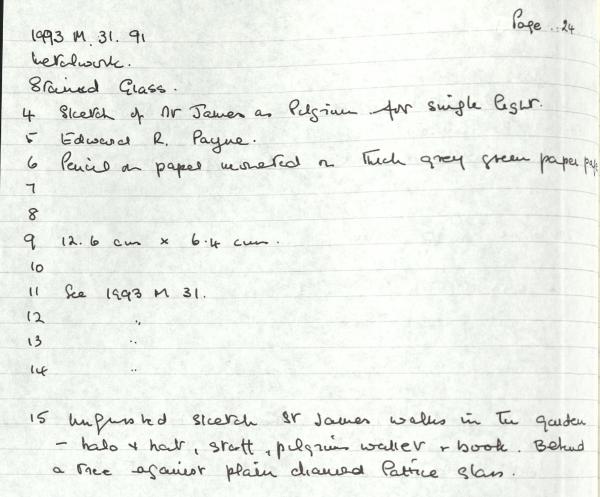 Page ..24
1993 M. 31. 91
Metalwork.
Stained Glass.
4 Sketch of St James as Pilgrim for single light.
5 Edward R. Payne.
6 Pencil on paper mounted on thick grey green paper
7
8
9 12.6 cm x 6.4 cm.
10
11 See 1993 M 31.
12 "
13 "
14 "
15 Unfinished sketch St James walks in the garden
- halo + hat, staff, pilgrims wallet + book. Behind
a tree against plain diamond lattice glass.